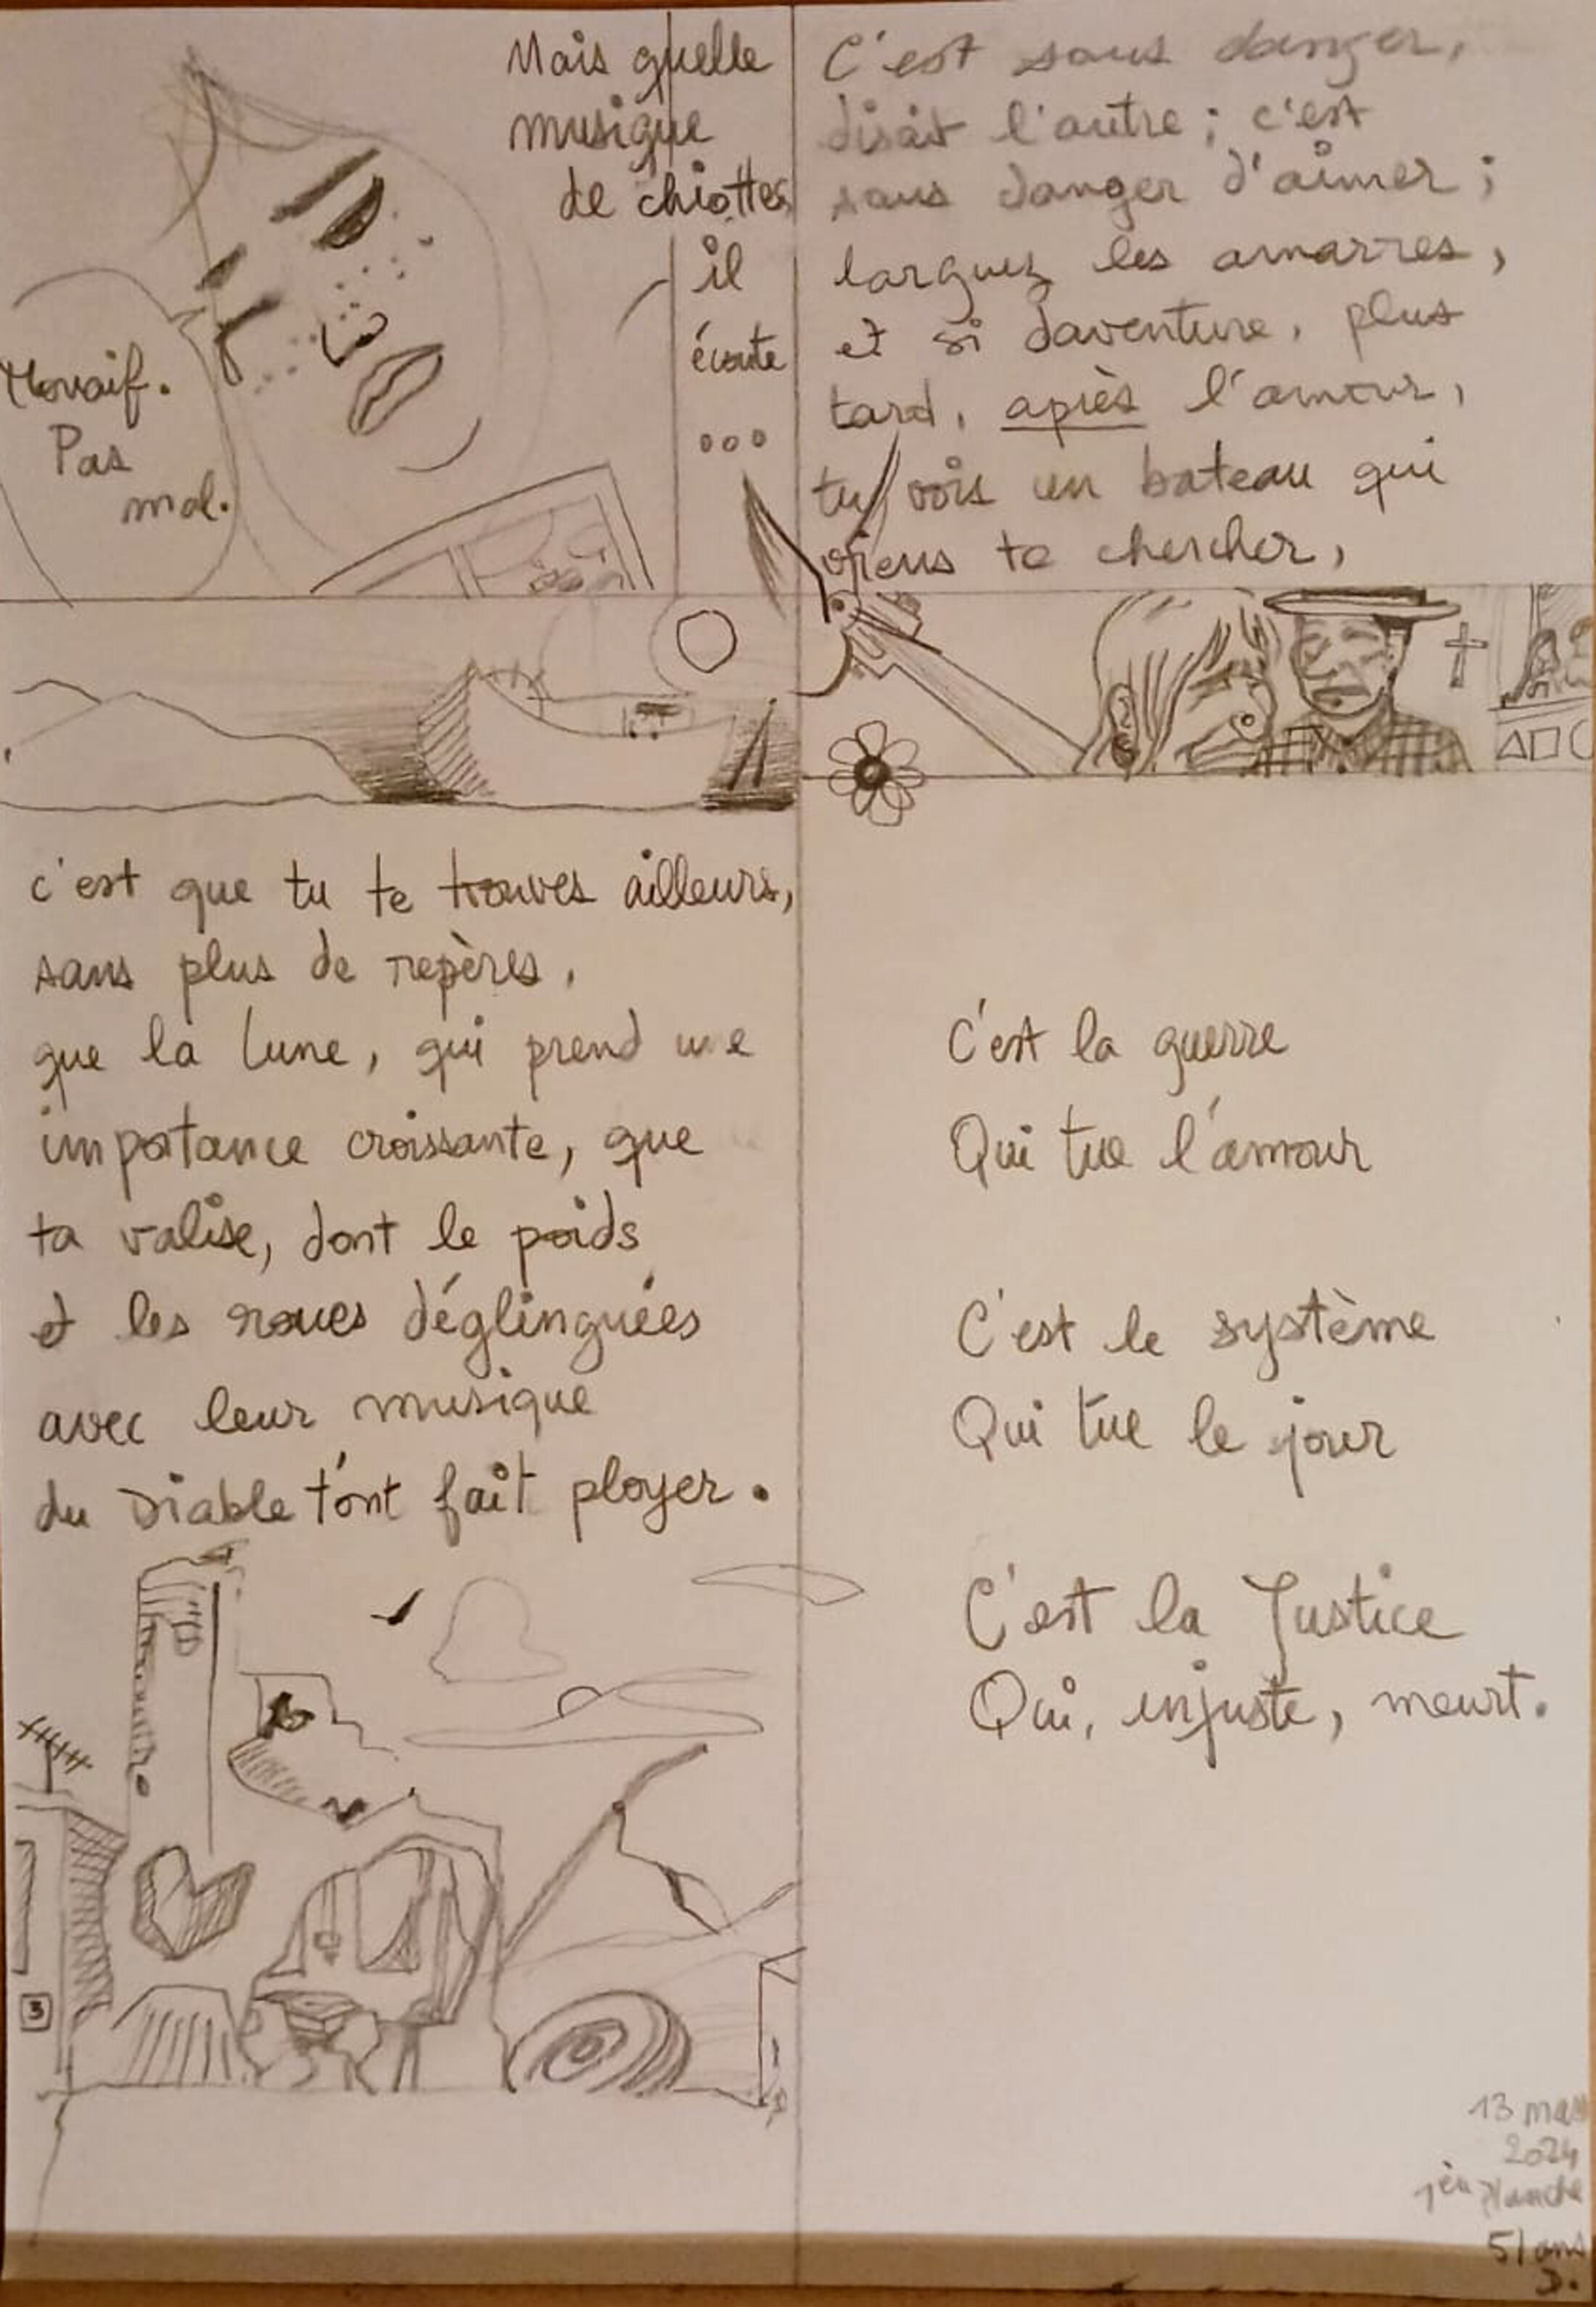 Mais quelle
musique
de chiottes
il
écoute
...
Mouaif.
Pas
mal.
C'est sans danger,
disait l'autre ; c'est
sans danger d'aimer ;
larguez les amarres,
et si d'aventure, plus
tard, après l'amour,
tu vois un bateau qui
viens te chercher,
c'est que tu te trouves ailleurs,
sans plus de repères,
que la Lune, qui prend une
importance croissante, que
ta valise, dont le poids
et les roues déglinguées
avec leur musique
du Diable t'ont fait ployer.
3
C'est la guerre
Qui tue l'amour
C'est le système
Qui tue le jour
C'est la Justice
Qui, injuste, meurt.
13
2024
planche
51 ans
D.